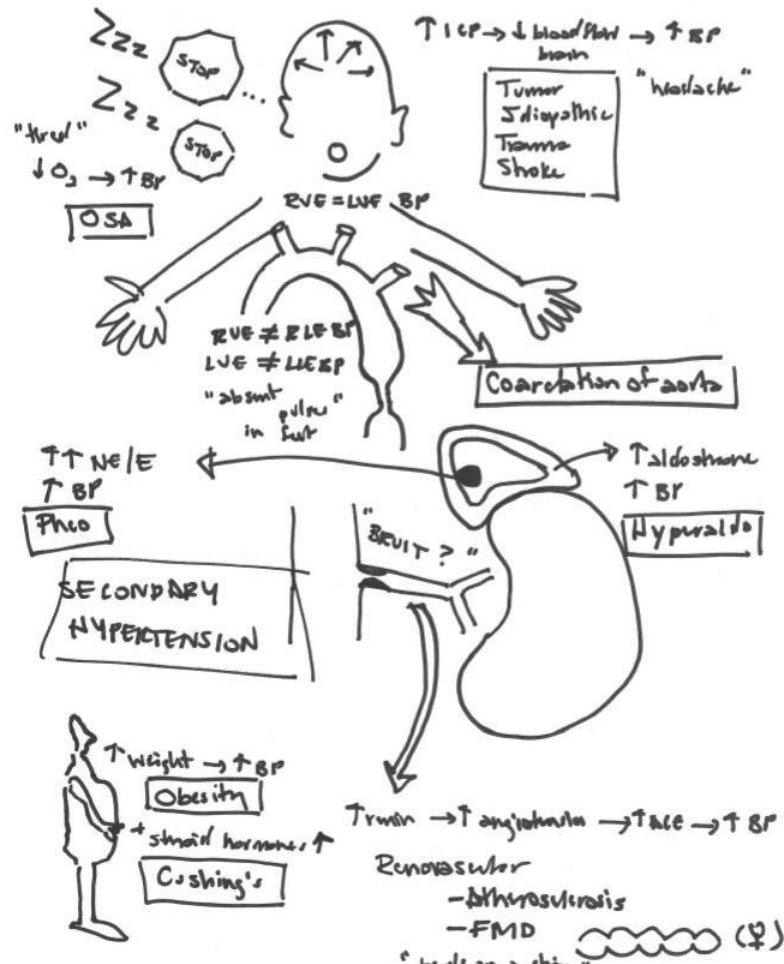 Zzz
STOP
...
Zzz
STOP
"tired"
↓ O2 → ↑ BP
OSA
↑ ICP → ↓ blood flow → ↑ BP
brain
"headache"
Tumor
Idiopathic
Trauma
Stroke
RUE = LUE BP
RUE ≠ RLE BP
LUE ≠ LLE BP
"absent
pulse"
in feet
Coarctation of aorta
↑↑ NE/E
↑ BP
Pheo
↑ aldosterone
↑ BP
Hyperaldo
"BRUIT?"
SECONDARY
HYPERTENSION
↑ weight → ↑ BP
Obesity
+ steroid hormones ↑
Cushing's
↑ renin → ↑ angiotensin → ↑ ACE → ↑ BP
Renovascular
- Atherosclerosis
- FMD
(♀)